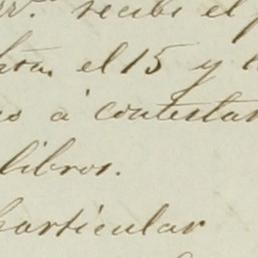 recibi el
el 15 y
á contestar
libros.
particular